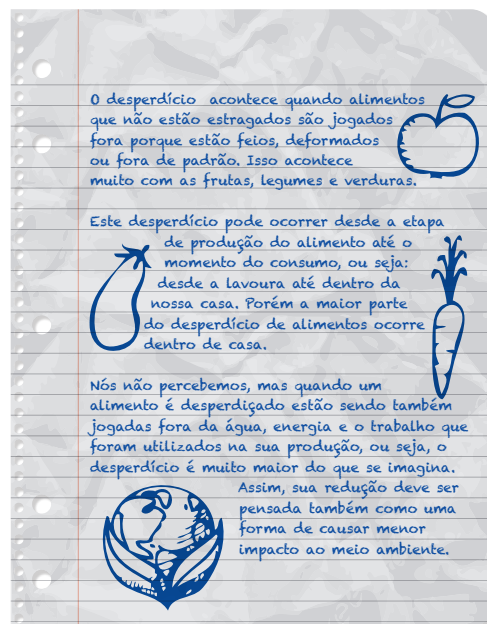 O desperdício acontece quando alimentos
que não estão estragados são jogados
fora porque estão feios, deformados
ou fora de padrão. Isso acontece
muito com as frutas, legumes e verduras.
Este desperdício pode ocorrer desde a etapa
de produção do alimento até o
momento do consumo, ou seja:
desde a lavoura até dentro da
nossa casa. Porém a maior parte
do desperdício de alimentos ocorre
dentro de casa.
Nós não percebemos, mas quando um
alimento é desperdiçado estão sendo também
jogadas fora da água, energia e o trabalho que
foram utilizados na sua produção, ou seja, o
desperdício é muito maior do que se imagina.
Assim, sua redução deve ser
pensada também como uma
forma de causar menor
impacto ao meio ambiente.